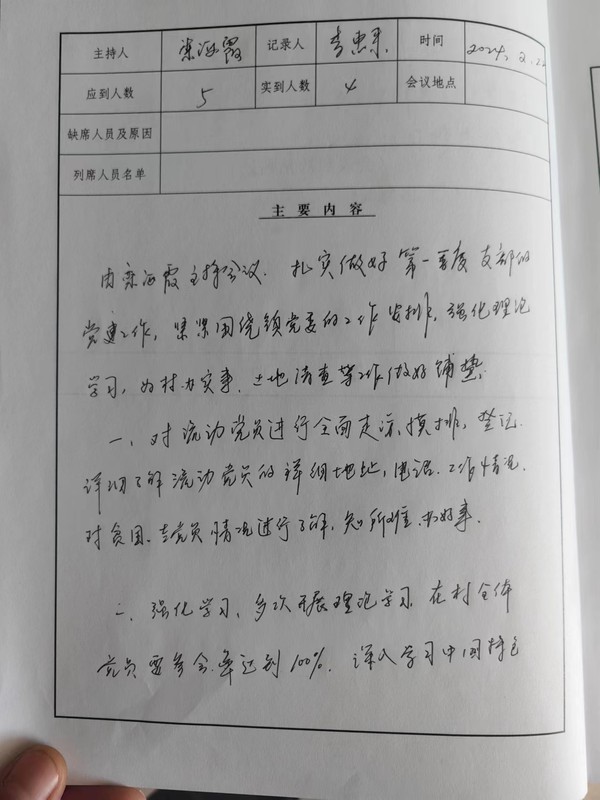 主持人 栾海霞 记录人 李忠录 时间 2024.2.22
应到人数 5 实到人数 4 会议地点
缺席人员及原因
列席人员名单
主要内容
由栾海霞主持会议. 扎实做好第一季度支部的
党建工作, 紧紧围绕镇党委的工作安排, 强化理论
学习, 为村办实事. 土地清查等工作做好铺垫.
一、对流动党员进行全面走访, 摸排, 登记.
详细了解流动党员的详细地址, 电话. 工作情况.
对贫困、老党员情况进行了解, 知所难. 办好事.
二、强化学习, 多次开展理论学习. 在村全体
党员要参会率达到100%. 深入学习中国特色